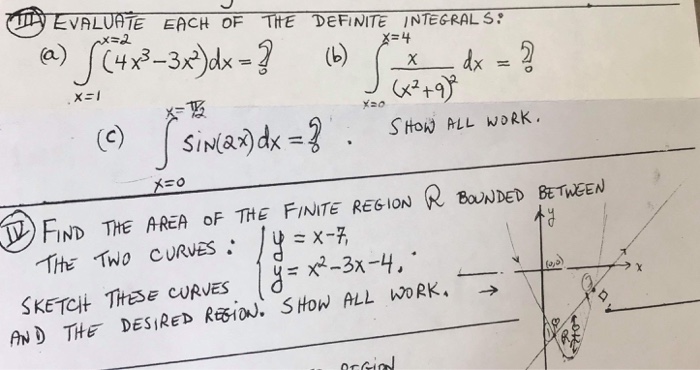 III EVALUATE EACH OF THE DEFINITE INTEGRALS:
(a) ∫_{x=1}^{x=2} (4x³-3x²)dx = ?
(b) ∫_{x=0}^{x=4} x/(x²+9)² dx = ?
(c) ∫_{x=0}^{x=π/2} sin(2x)dx = ? . SHOW ALL WORK.
IV FIND THE AREA OF THE FINITE REGION R BOUNDED BETWEEN
THE TWO CURVES: { y = x-7,
y = x²-3x-4.
SKETCH THESE CURVES
AND THE DESIRED REGION. SHOW ALL WORK. →
y
(0,0)
x